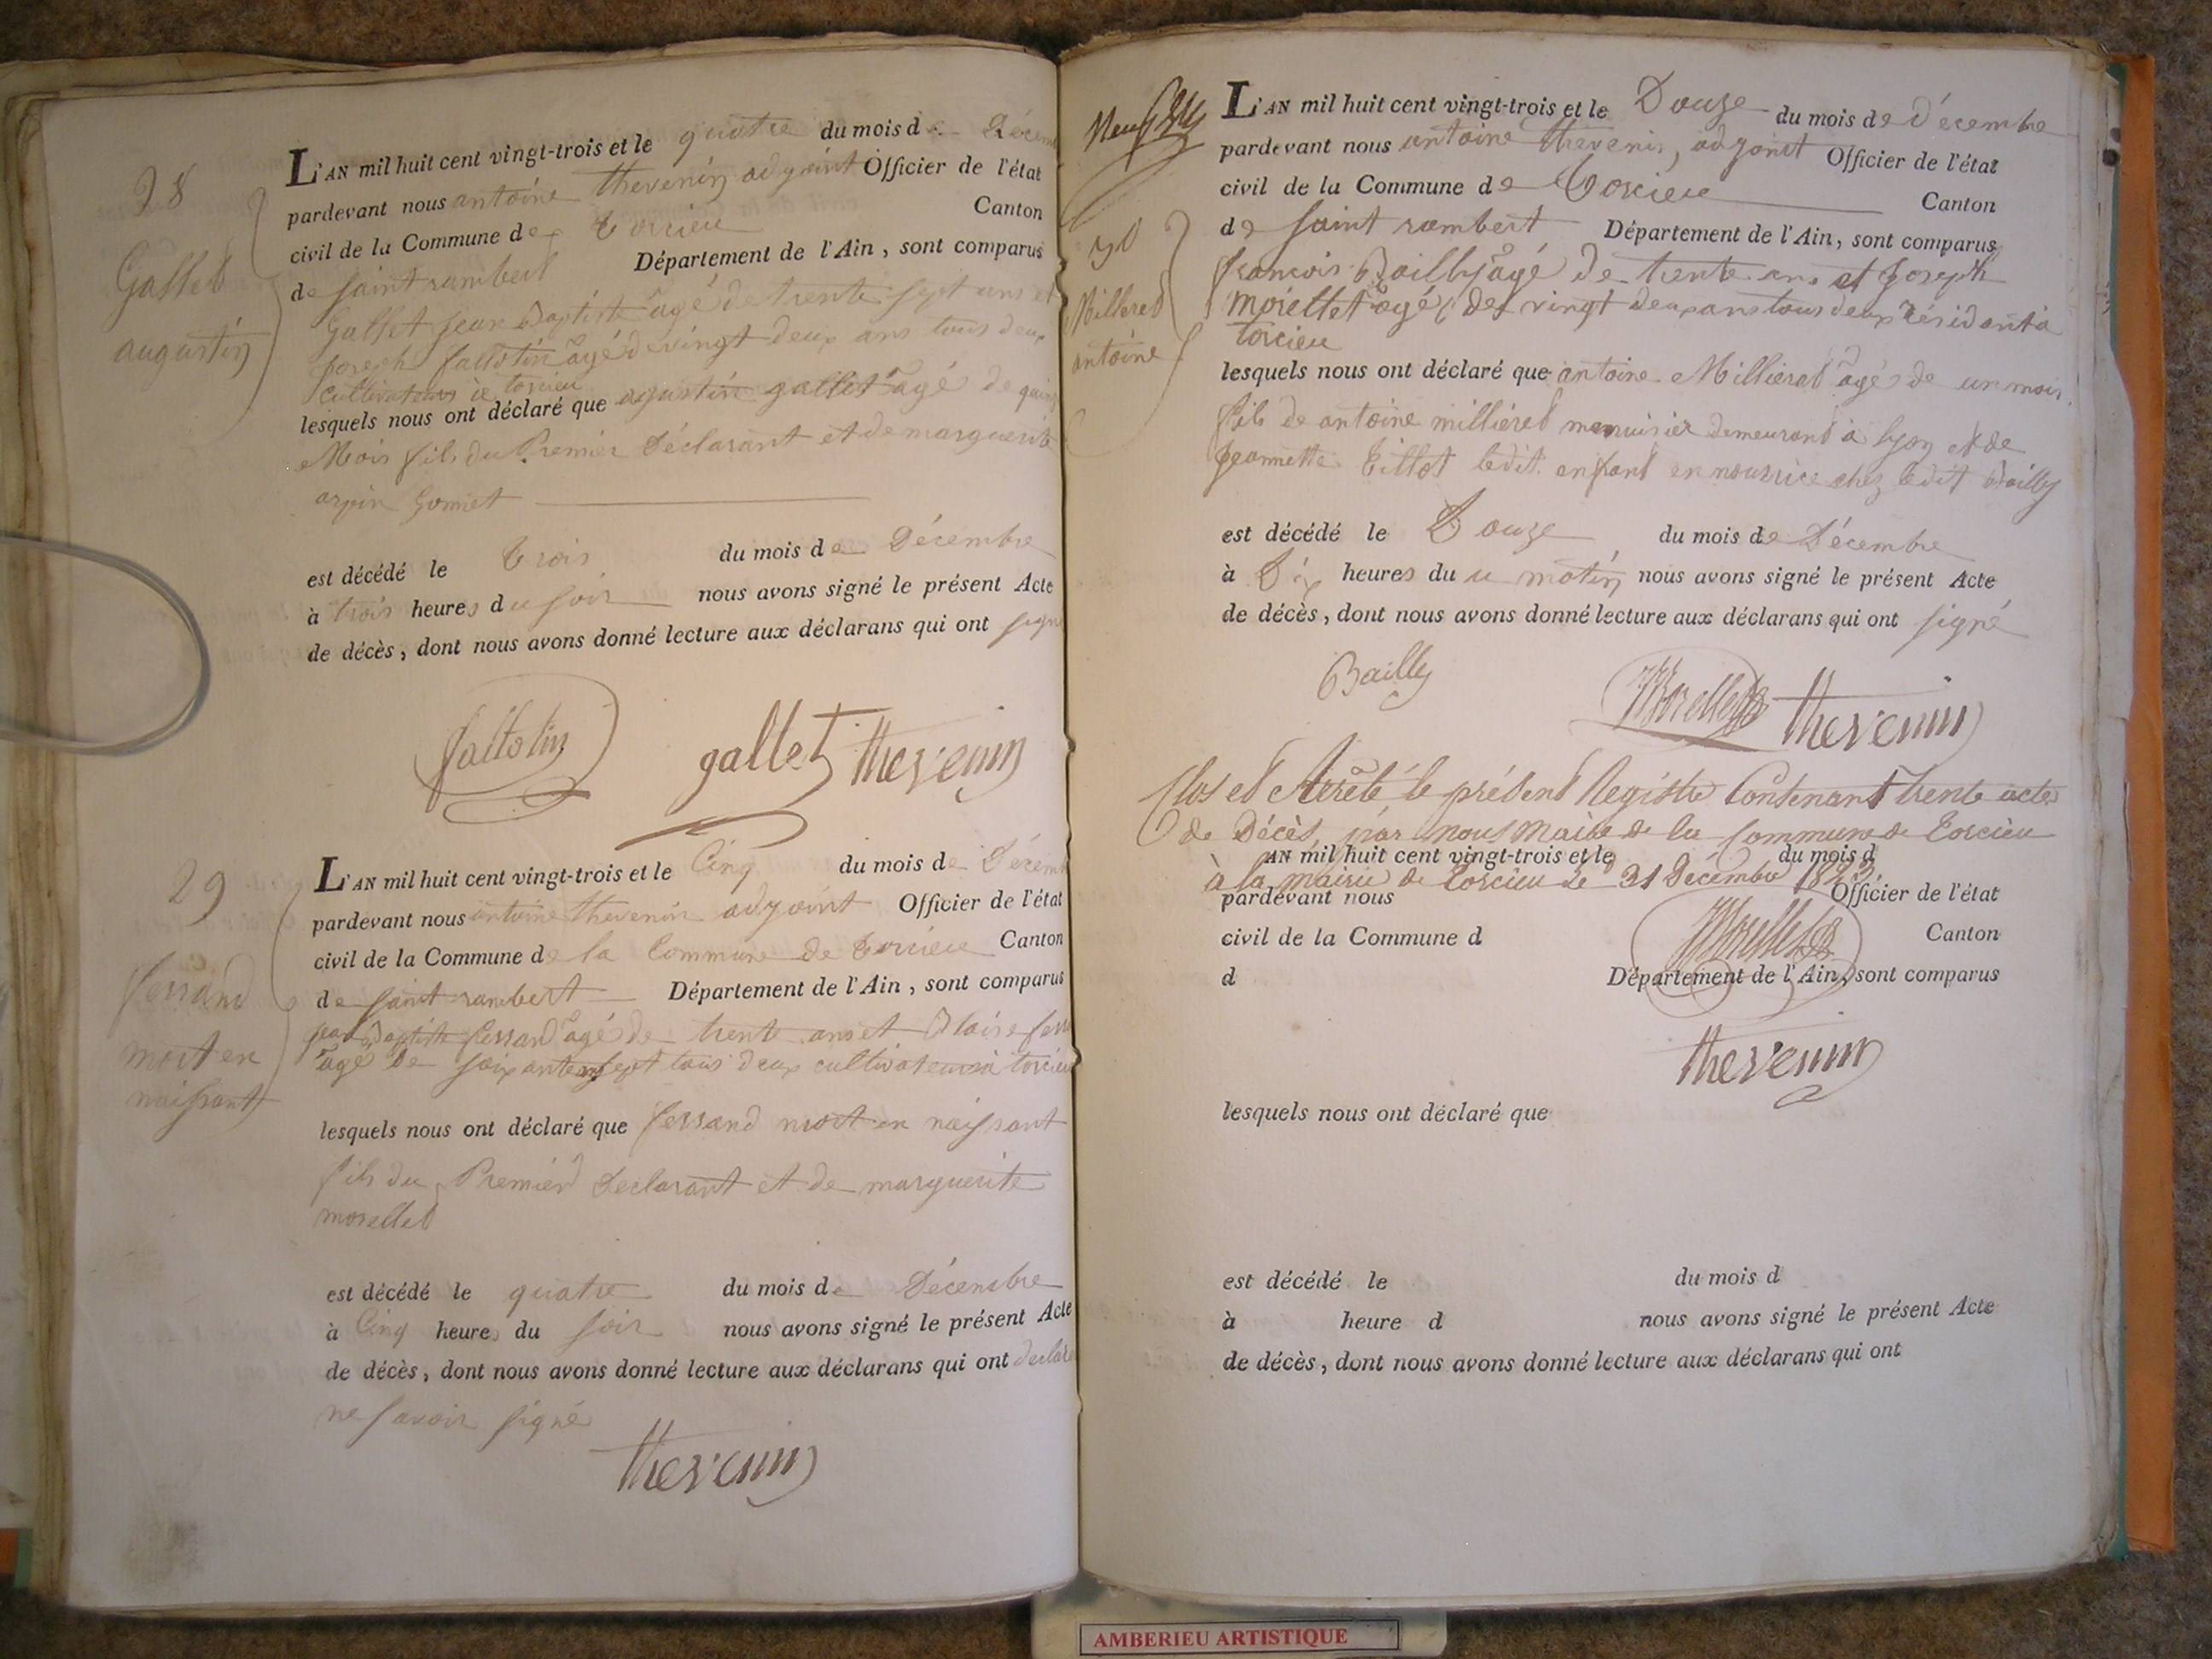 28
Gallet
augustin
L'AN mil huit cent vingt-trois et le quatre du mois de Décem
pardevant nous antoine thevenin adjoint Officier de l'état
civil de la Commune de torcieu Canton
de saint rambert Département de l'Ain, sont comparus
Gallet jean Baptiste agé de trente sept ans et
joseph fallotin agé de vingt deux ans tous deux
cultivateurs à torcieu
lesquels nous ont déclaré que agustin gallet agé de quin
Mois fils du Premier Déclarant et de marguerite
arpin Gonnet
est décédé le trois du mois de Décembre
à trois heures du soir nous avons signé le présent Acte
de décès, dont nous avons donné lecture aux déclarans qui ont signé
fallotin gallet thevenin
29
ferrand
mort en
naissant
L'AN mil huit cent vingt-trois et le Cinq du mois de Décem
pardevant nous antoine thevenin adjoint Officier de l'état
civil de la Commune de la Commune de torcieu Canton
de saint rambert Département de l'Ain, sont comparus
jean Baptiste ferrand agé de trente ans et Blaise ferr
agé de soixante sept tous deux cultivateurs à torcieu
lesquels nous ont déclaré que ferrand mort en naissant
fils du Premier Declarant et de marguerite
morellet
est décédé le quatre du mois de Décembre
à Cinq heures du soir nous avons signé le présent Acte
de décès, dont nous avons donné lecture aux déclarans qui ont declaré
ne savoir signé
thevenin
30
Milleret
antoine
L'AN mil huit cent vingt-trois et le Douze du mois de Décembre
pardevant nous antoine thevenin, adjoint Officier de l'état
civil de la Commune de torcieu Canton
de saint rambert Département de l'Ain, sont comparus
francois Bailly agé de trente ans et Joseph
Morellet agé de vingt deux ans tous deux résidant à
torcieu
lesquels nous ont déclaré que antoine Millieret agé de un mois
fils de antoine millieret menuisier demeurant à lyon et de
jeannette tillot ledit enfant en nourrice chez ledit Bailly
est décédé le Douze du mois de Décembre
à Dix heures du u matin nous avons signé le présent Acte
de décès, dont nous avons donné lecture aux déclarans qui ont signé
Bailly Morellet thevenin
Clos et Arrêté le présent Registre Contenant trente actes
de Décès, par nous Maire de la Commune de Torcieu
AN mil huit cent vingt-trois et le du mois d
à la mairie de Torcieu le 31 Décembre 1823
pardevant nous Officier de l'état
civil de la Commune d Canton
Morellet
d Département de l'Ain, sont comparus
thevenin
lesquels nous ont déclaré que
est décédé le du mois d
à heure d nous avons signé le présent Acte
de décès, dont nous avons donné lecture aux déclarans qui ont
AMBERIEU ARTISTIQUE